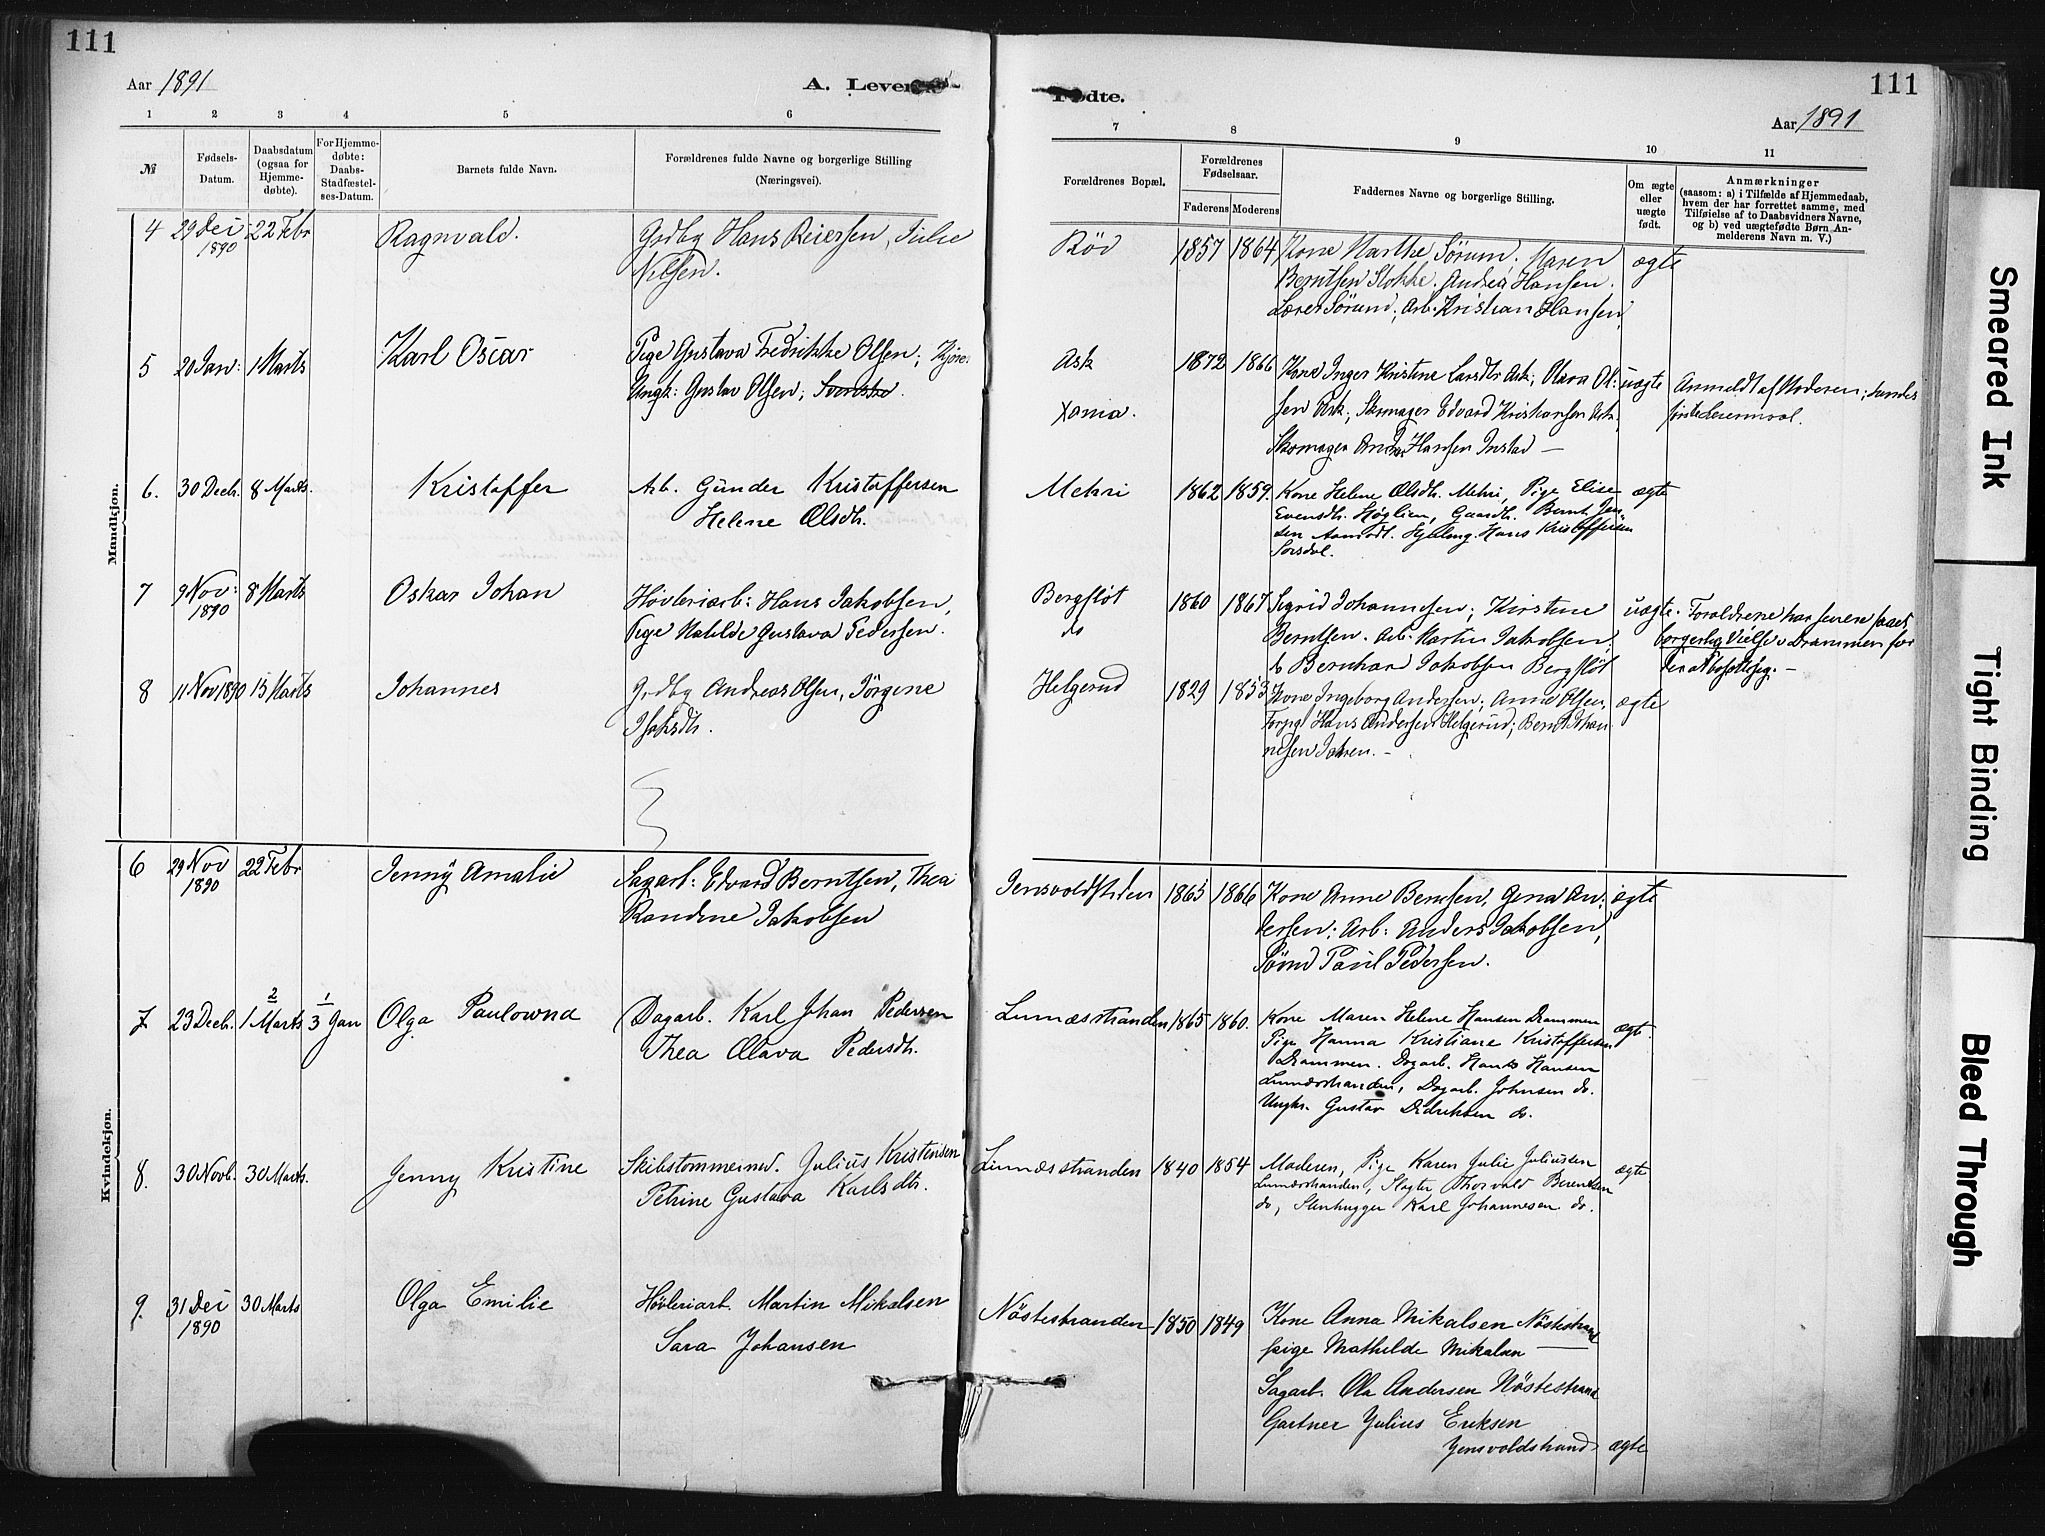 111
Aar 1891
A. Levende
Fødte.
111
Aar 1891
1 2 3 4 5 6 7 8 9 10 11
№
Fødsels-
Datum.
Daabsdatum
(ogsaa for
Hjemme-
døbte).
For Hjemme-
døbte:
Daabs-
Stadfæstel-
ses-Datum.
Barnets fulde Navn.
Forældrenes fulde Navne og borgerlige Stilling
(Næringsvei).
Forældrenes Bopæl.
Forældrenes
Fødselsaar.
Faderens Moderens
Faddernes Navne og borgerlige Stilling.
Om ægte
eller
uægte
født.
Anmærkninger
(saasom: a) i Tilfælde af Hjemmedaab,
hvem der har forrettet samme, med
Tilføielse af to Daabsvidners Navne,
og b) ved uægtefødte Børn An-
melderens Navn m. V.)
Mandkjøn.
4 29 Dec 22 Febr
1890
Ragnvald.
Grdbr Hans Reiersen, Julie
Nilsen.
Röd
1857 1864
Kone Marthe Sørum. Maren
Berntsen Stokke. Andrea Hansen.
Lærer Sörum, Arb. Kristian Hansen,
ægte
5 20 Jan: 1 Marts
Karl Oscar
Pige Gustava Fredrikke Olsen;
Ungk: Gustav Olsen; Svenske.
Ask
Xania.
1872 1866
Kone Inger Kristine Larsdtr Ask; Olava Ol:
sen Ask; Skomager Edvard Kristiansen Ask,
Skomager Hansen Instad —
uægte
Anmeldt af Moderen; hendes
første Leiermaal.
6. 30 Decb. 8 Marts.
Kristoffer
Arb. Gunder Kristoffersen
Helene Olsdtr.
Mehri
1862 1859.
Kone Helene Olsdtr. Mehri, Pige Elise
Evensdtr. Høglien, Gaardbr. Bernt Jen-
sen Aamodt. Hans Kristoffersen
Sørsdal.
ægte
7 9 Nov: 8 Marts
1890
Oskar Johan
Høvleriarb: Hans Jakobsen,
Pige Matilde Gustava Pedersen.
Bergfløt
do
1860 1867
Sigrid Johannesen; Kirstine
Berntsen. Arb. Martin Jakobsen;
do Bernhard Jakobsen Bergfløt
uægte.
Foraldrene har senere faaet
borgerlig Vielse i Drammen før
8 11 Nov 1890 15 Marts
Johannes
Grdbr Andreas Olsen, Jörgine
Isaksdtr.
Helgerud
1829 1853
Kone Ingeborg Andersen; Anne Olsen,
Hans Andersen Helgerud; Bernt Johan
nesen Jahren. —
ægte
Kvindekjøn.
6 29 Nov 22 Febr
1890
Jenny Amalie
Sagarb: Edvard Berntsen, Thea
Randine Jakobsen
Jensvoldstrden
1865 1866
Kone Anne Berntsen, Gina An:
dersen; Arb: Anders Jakobsen,
Paul Pedersen.
ægte
7 23 Decb. 2/1 Marts 1/3 Jan
Olga Paulowna
Dagarb. Karl Johan Pedersen
Thea Olava Pedersdtr.
Linnæsstranden
1865 1860.
Kone Maren Helene Hansen Drammen
Pige Hanna Kristiane Kristoffersen
Drammen. Dagarb. Hans Hansen
Linnæsstranden, Dagarb. Johnsen do.
Ungkr. Gustav Didriksen do.
ægte.
8. 30 Novb. 30 Marts.
Jenny Kristine
Skibstømmermd. Julius Kristensen
Petrine Gustava Karlsdtr.
Linnæsstranden
1840 1854
Moderen, Pige Karen Julie Juliussen
Linnæsstranden, Slagter Thorvald Berentsen
do, Stenhugger Karl Johannesen do.
ægte
9. 31 Dec 30 Marts
1890
Olga Emilie
Høvleriarb. Martin Mikalsen
Sara Johansen
Nöstestranden
1850 1849
Kone Anna Mikalsen Nöstestrand
pige Mathilde Mikalsen —
Sagarb. Ola Andersen Nöstestrand
Gartner Julius Eriksen
Jensvoldstrand
ægte
Smeared Ink
Tight Binding
Bleed Through